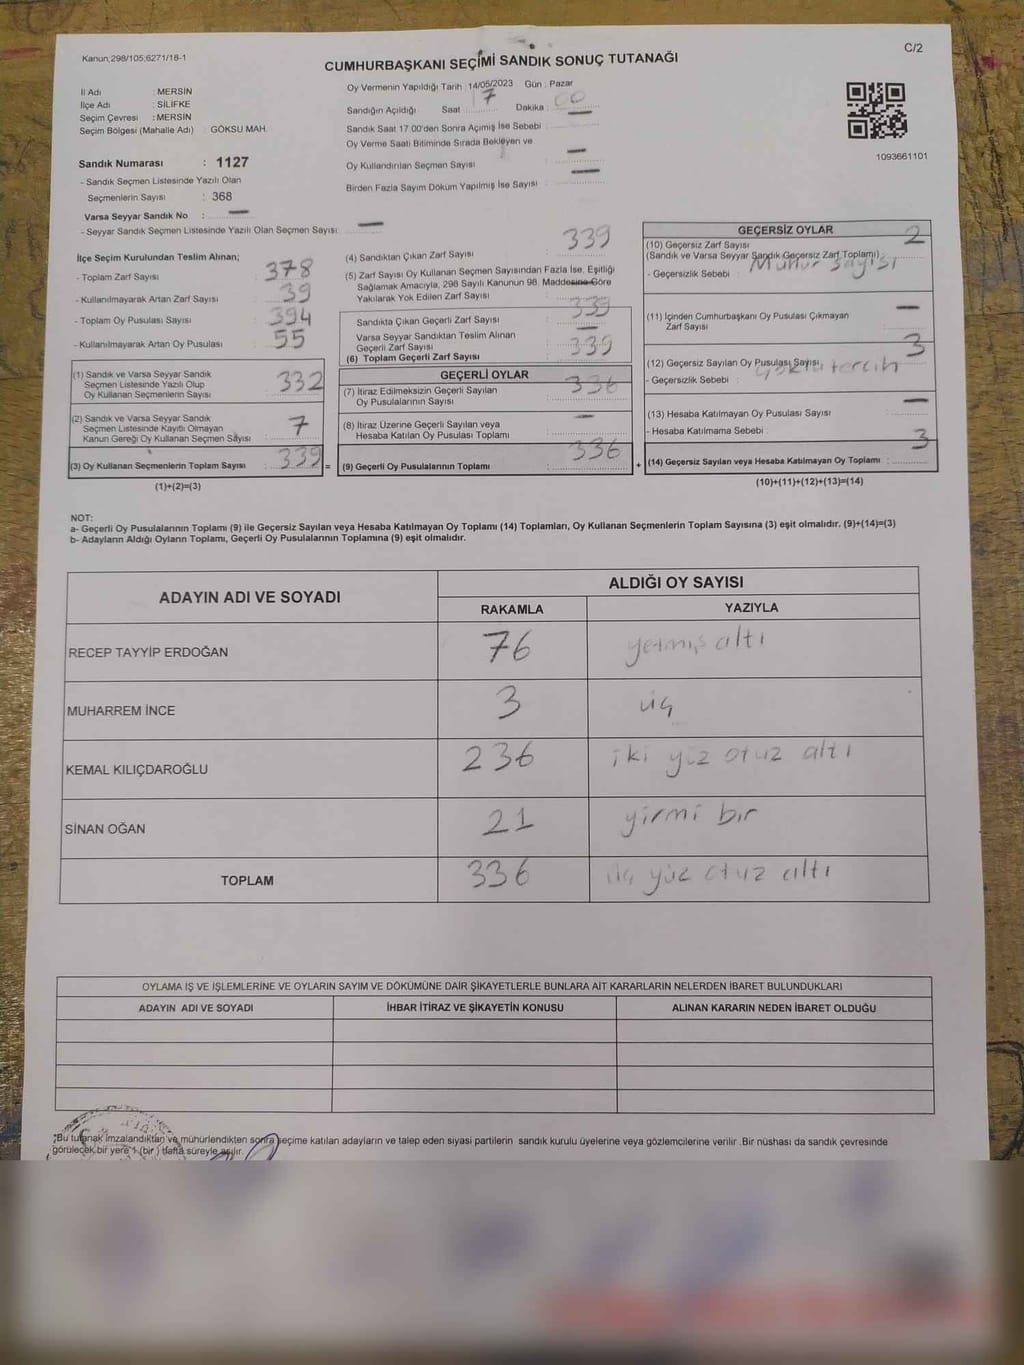 Kanun;298/105;6271/18-1
C/2
CUMHURBAŞKANI SEÇİMİ SANDIK SONUÇ TUTANAĞI
İl Adı : MERSİN
İlçe Adı : SİLİFKE
Seçim Çevresi : MERSİN
Seçim Bölgesi (Mahalle Adı) : GÖKSU MAH.
Sandık Numarası : 1127
- Sandık Seçmen Listesinde Yazılı Olan
Seçmenlerin Sayısı : 368
Varsa Seyyar Sandık No : —
- Seyyar Sandık Seçmen Listesinde Yazılı Olan Seçmen Sayısı: —
Oy Vermenin Yapıldığı Tarih :14/05/2023 Gün : Pazar
Sandığın Açıldığı Saat 17 Dakika : 00
Sandık Saat 17.00'den Sonra Açımış İse Sebebi : —
Oy Verme Saati Bitiminde Sırada Bekleyen ve
Oy Kullandırılan Seçmen Sayısı : —
Birden Fazla Sayım Döküm Yapılmış İse Sayısı : —
1093661101
İlçe Seçim Kurulundan Teslim Alınan;
- Toplam Zarf Sayısı : 378
- Kullanılmayarak Artan Zarf Sayısı : 39
- Toplam Oy Pusulası Sayısı : 394
- Kullanılmayarak Artan Oy Pusulası : 55
(1) Sandık ve Varsa Seyyar Sandık
Seçmen Listesinde Yazılı Olup
Oy Kullanan Seçmenlerin Sayısı : 332
(2) Sandık ve Varsa Seyyar Sandık
Seçmen Listesinde Kayıtlı Olmayan
Kanun Gereği Oy Kullanan Seçmen Sayısı : 7
(3) Oy Kullanan Seçmenlerin Toplam Sayısı : 339 =
(1)+(2)=(3)
(4) Sandıktan Çıkan Zarf Sayısı : 339
(5) Zarf Sayısı Oy Kullanan Seçmen Sayısından Fazla İse, Eşitliği
Sağlamak Amacıyla, 298 Sayılı Kanunun 98. Maddesine Göre
Yakılarak Yok Edilen Zarf Sayısı : —
Sandıkta Çıkan Geçerli Zarf Sayısı : 339
Varsa Seyyar Sandıktan Teslim Alınan
Geçerli Zarf Sayısı : —
(6) Toplam Geçerli Zarf Sayısı : 339
GEÇERLİ OYLAR
(7) İtiraz Edilmeksizin Geçerli Sayılan
Oy Pusulalarının Sayısı : 336
(8) İtiraz Üzerine Geçerli Sayılan veya
Hesaba Katılan Oy Pusulası Toplamı : —
(9) Geçerli Oy Pusulalarının Toplamı : 336 +
GEÇERSİZ OYLAR
(10) Geçersiz Zarf Sayısı : 2
(Sandık ve Varsa Seyyar Sandık Geçersiz Zarf Toplamı)
- Geçersizlik Sebebi : Mühür sayısı
(11) İçinden Cumhurbaşkanı Oy Pusulası Çıkmayan
Zarf Sayısı : —
(12) Geçersiz Sayılan Oy Pusulası Sayısı : 3
- Geçersizlik Sebebi : tercih
(13) Hesaba Katılmayan Oy Pusulası Sayısı : —
- Hesaba Katılmama Sebebi :
(14) Geçersiz Sayılan veya Hesaba Katılmayan Oy Toplamı : 3
(10)+(11)+(12)+(13)=(14)
NOT:
a- Geçerli Oy Pusulalarının Toplamı (9) ile Geçersiz Sayılan veya Hesaba Katılmayan Oy Toplamı (14) Toplamları, Oy Kullanan Seçmenlerin Toplam Sayısına (3) eşit olmalıdır. (9)+(14)=(3)
b- Adayların Aldığı Oyların Toplamı, Geçerli Oy Pusulalarının Toplamına (9) eşit olmalıdır.
ADAYIN ADI VE SOYADI
ALDIĞI OY SAYISI
RAKAMLA YAZIYLA
RECEP TAYYİP ERDOĞAN 76 yetmiş altı
MUHARREM İNCE 3 üç
KEMAL KILIÇDAROĞLU 236 iki yüz otuz altı
SİNAN OĞAN 21 yirmi bir
TOPLAM 336 üç yüz otuz altı
OYLAMA İŞ VE İŞLEMLERİNE VE OYLARIN SAYIM VE DÖKÜMÜNE DAİR ŞİKAYETLERLE BUNLARA AİT KARARLARIN NELERDEN İBARET BULUNDUKLARI
ADAYIN ADI VE SOYADI İHBAR İTİRAZ VE ŞİKAYETİN KONUSU ALINAN KARARIN NEDEN İBARET OLDUĞU
*Bu tutanak imzalandıktan ve mühürlendikten sonra seçime katılan adayların ve talep eden siyasi partilerin sandık kurulu üyelerine veya gözlemcilerine verilir .Bir nüshası da sandık çevresinde
görülecek bir yere 1 (bir ) hafta süreyle asılır.